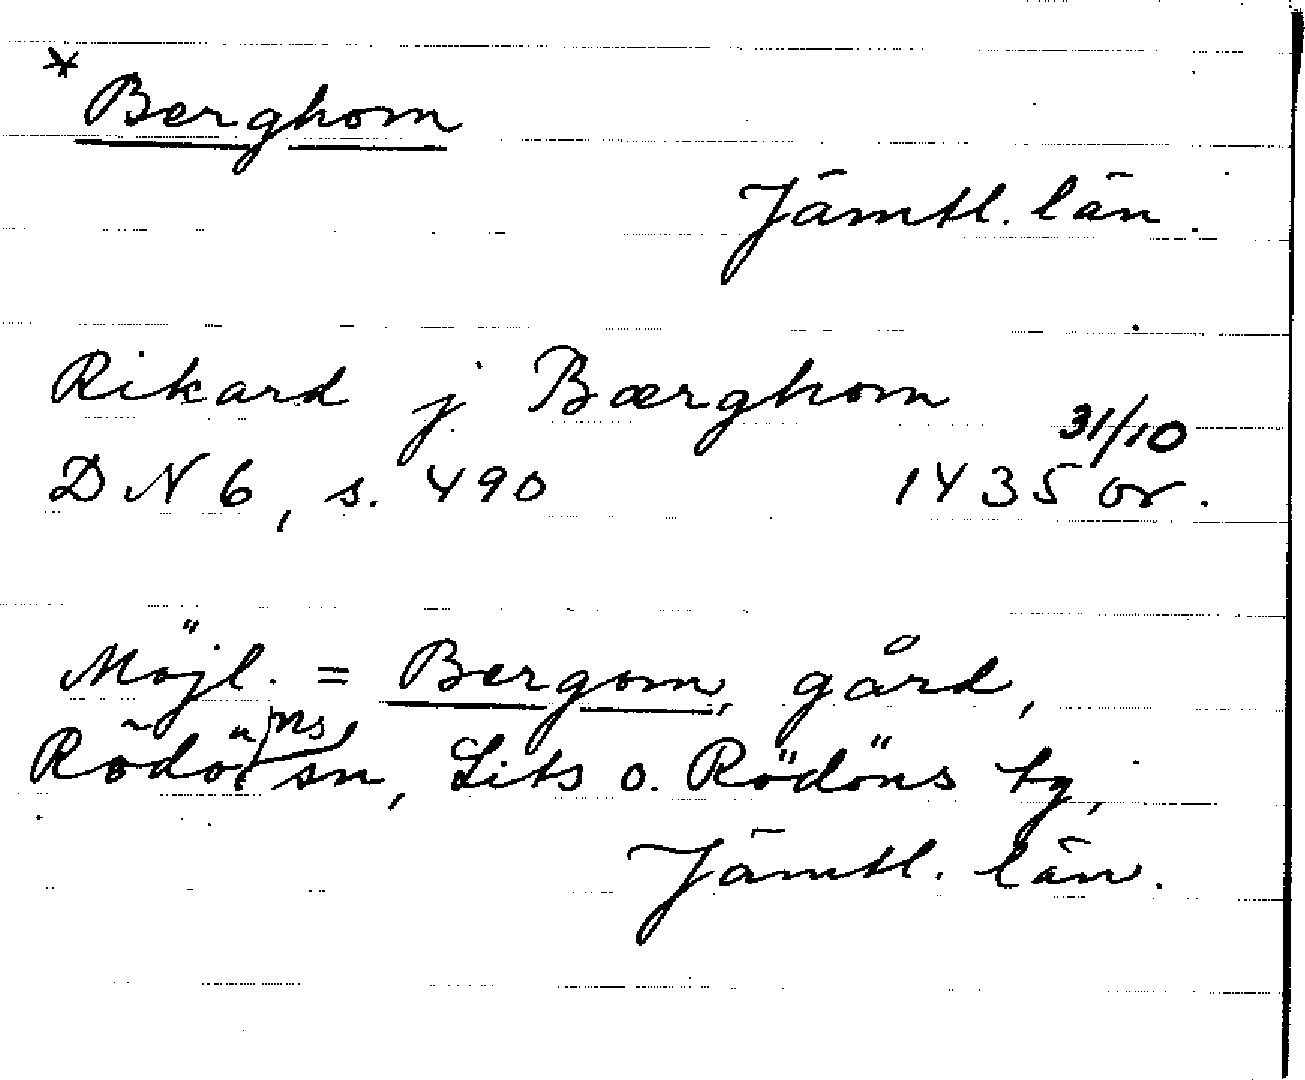 * Berghom
Jämtl. län.
Rikard j Bærghom
DN 6, s. 490 31/10 1435 or.
Möjl. = Bergom, gård,
Rödöns sn, Lits o. Rödöns tg,
Jämtl. län.